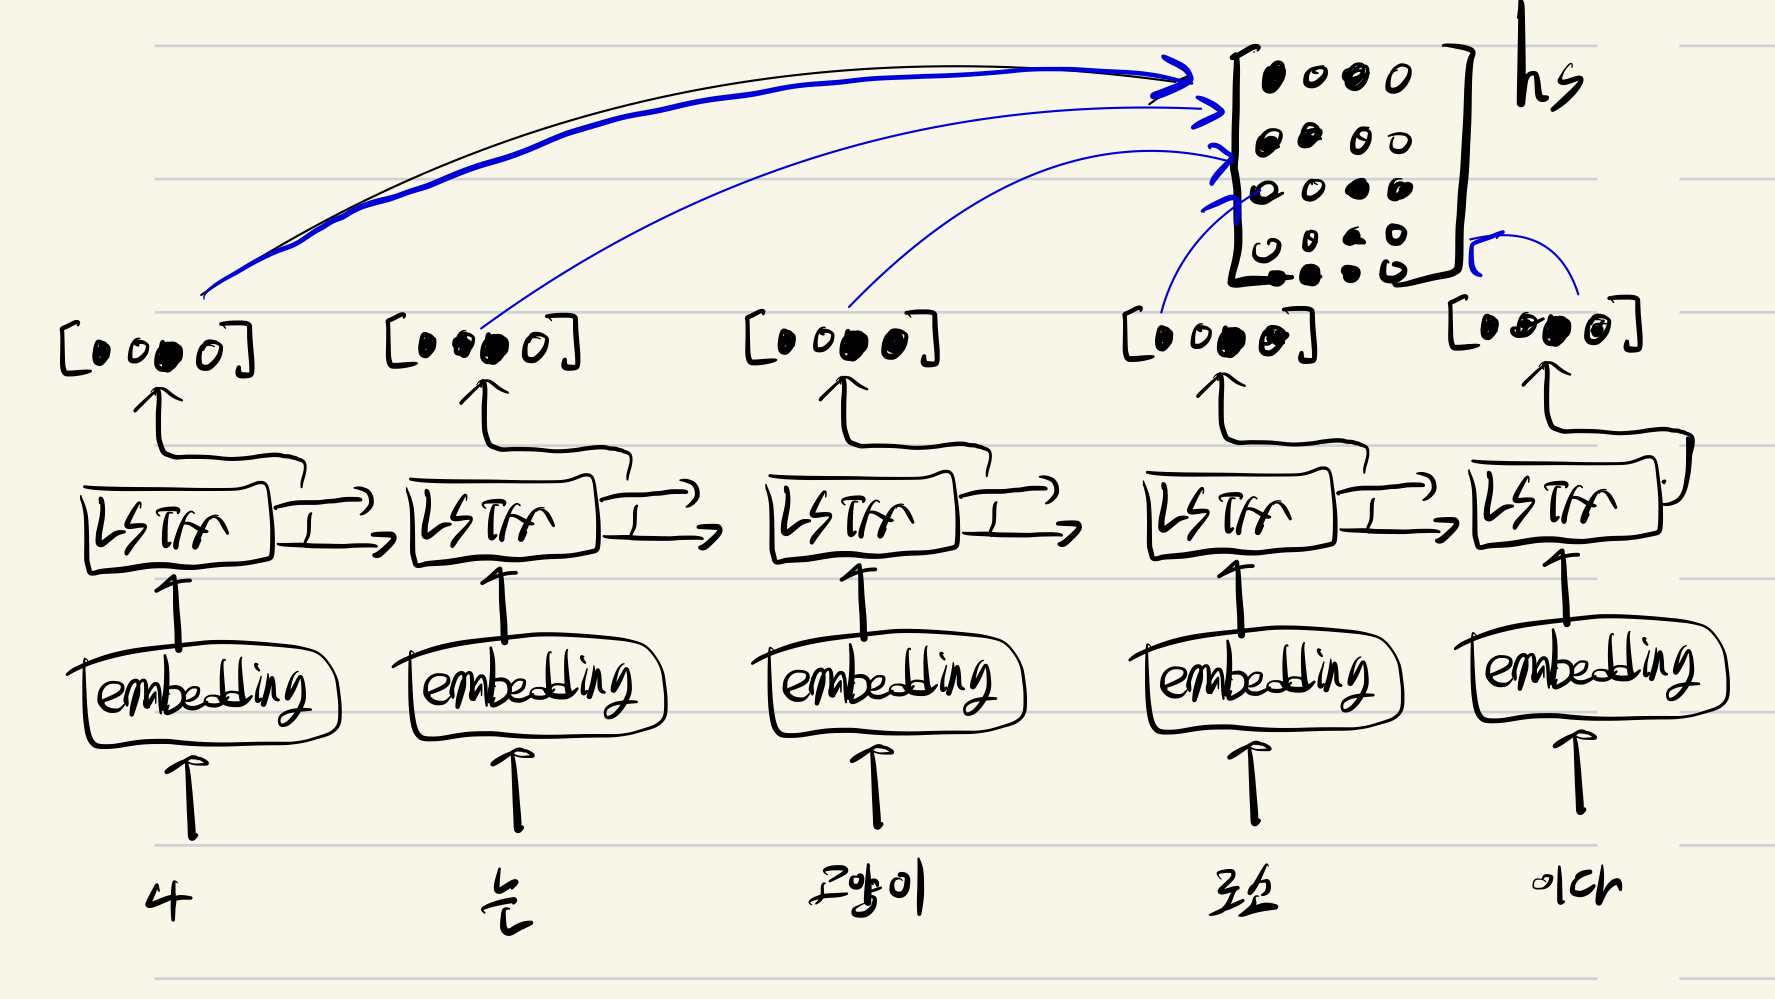 hs
LSTM LSTM LSTM LSTM LSTM
embedding embedding embedding embedding embedding
나 는 고양이 로소 이다